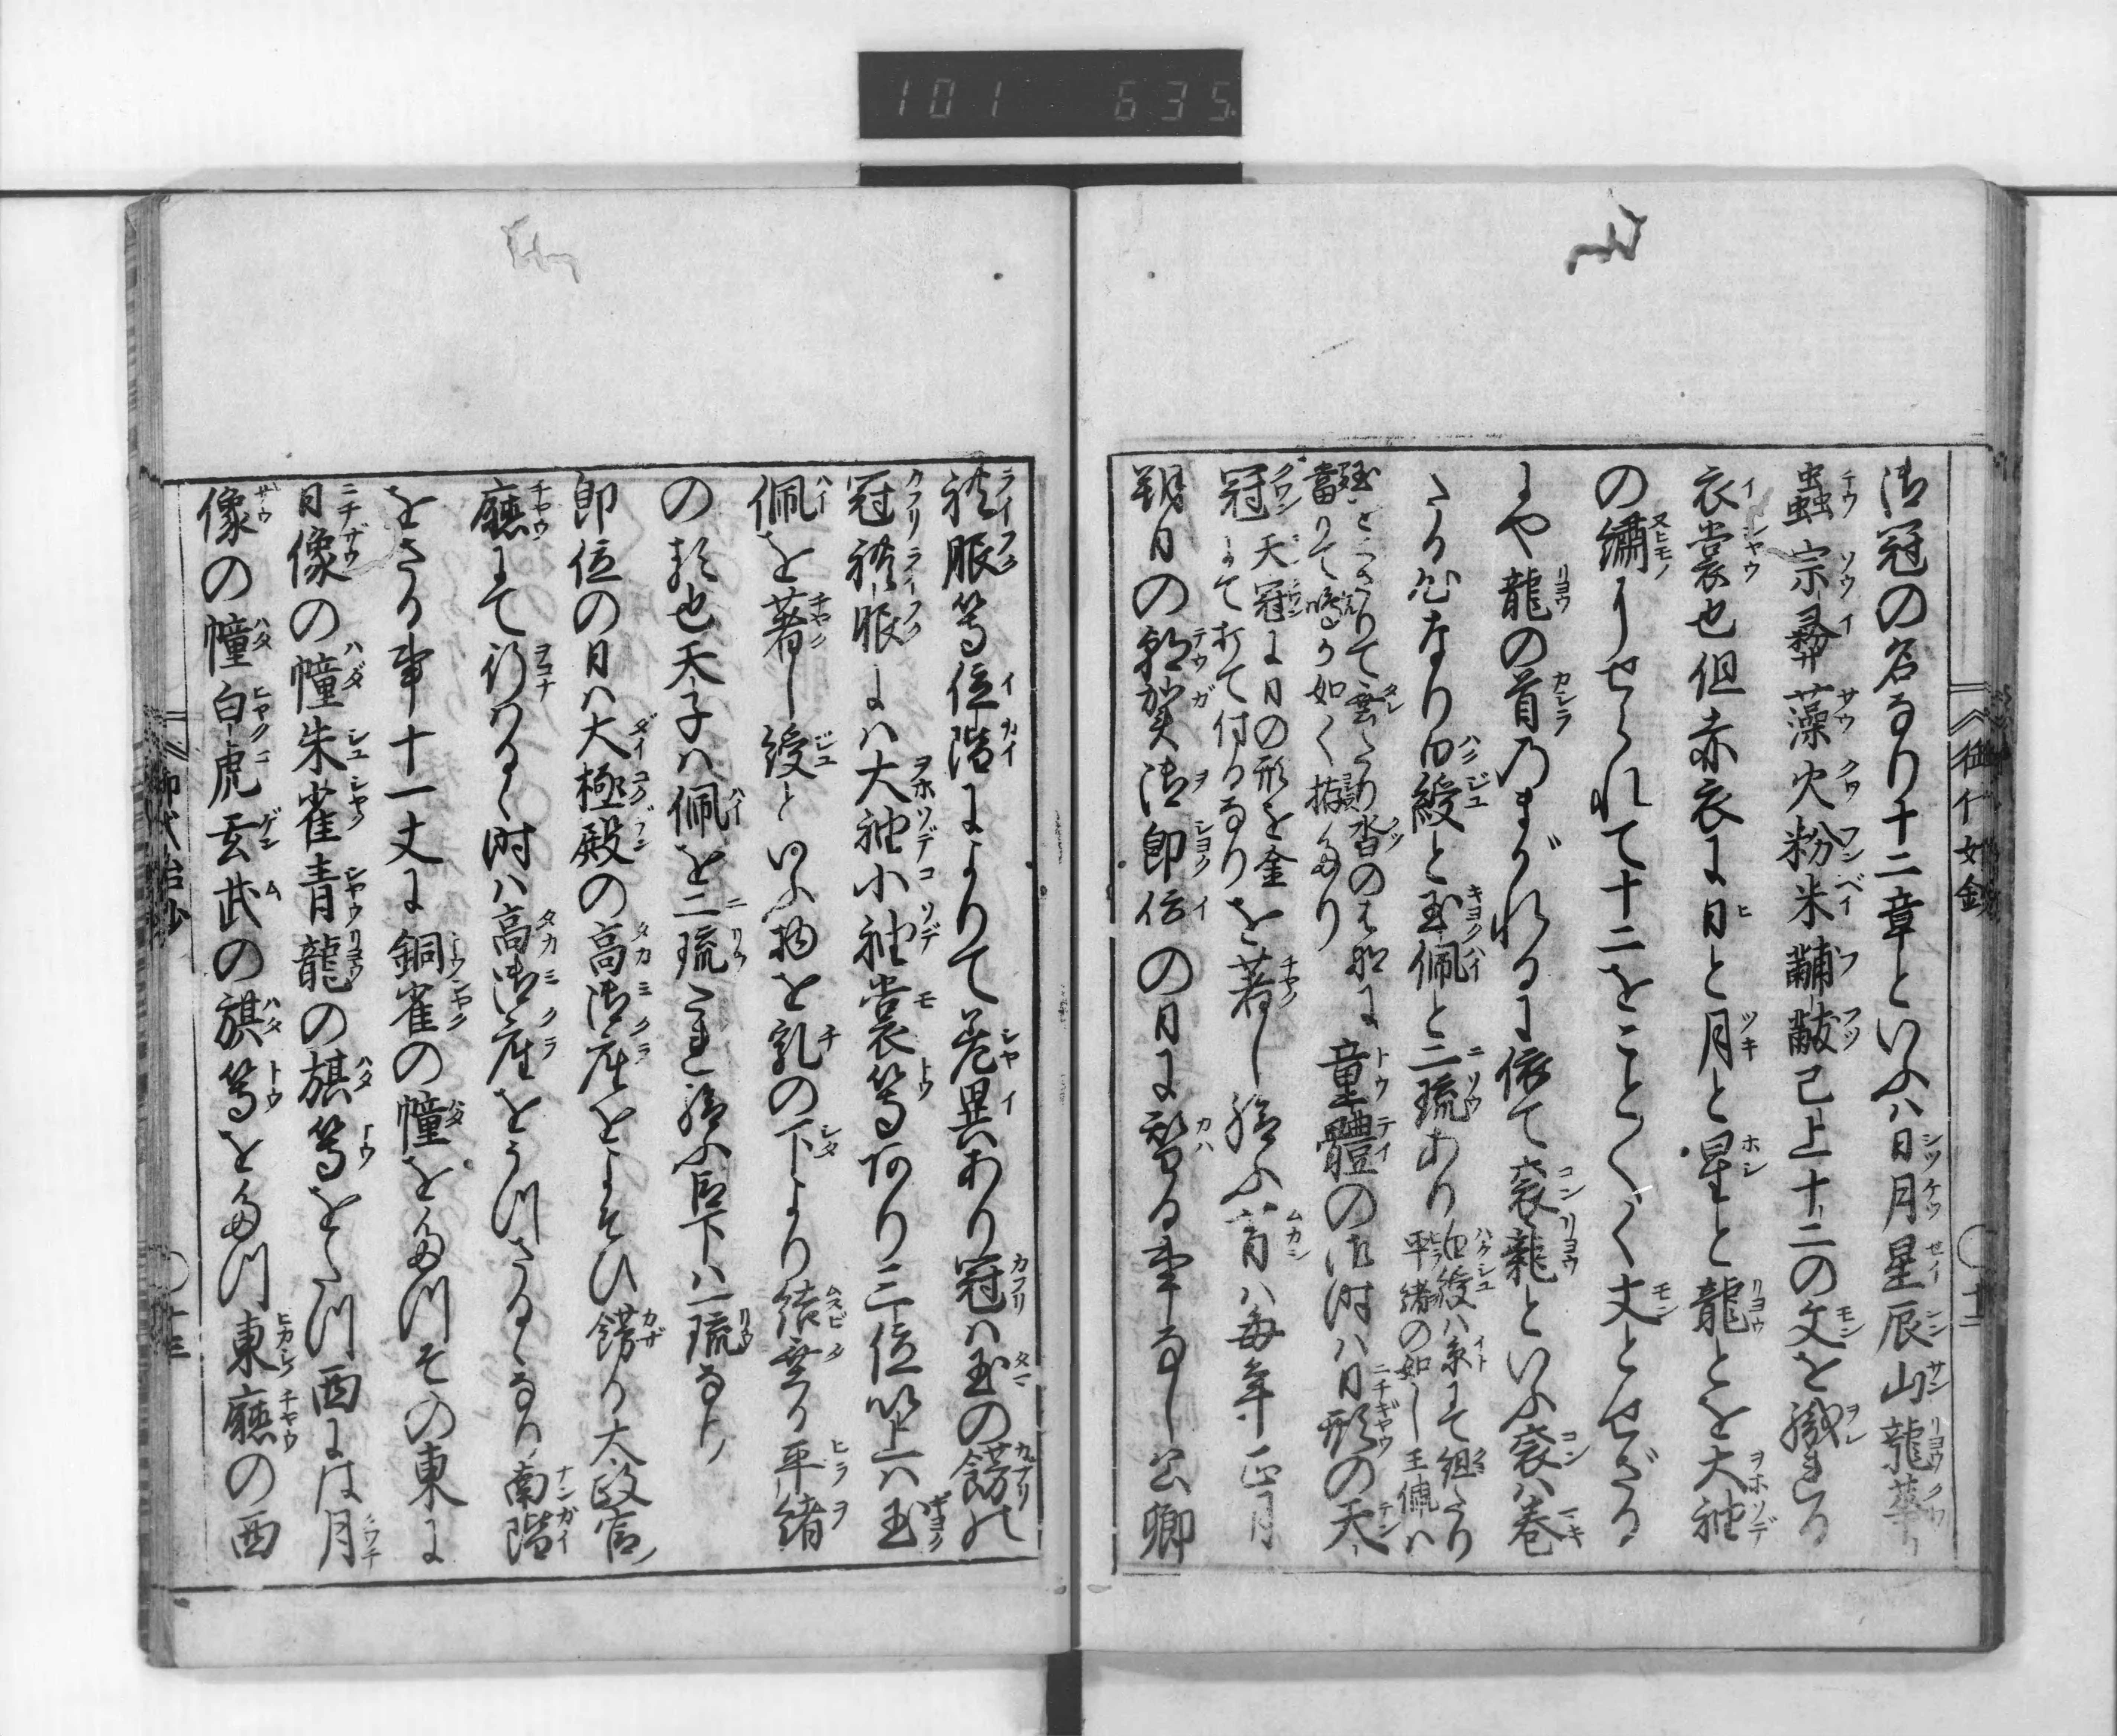 101 635
御冠の名なり十二章といふハ日月星辰山龍華
蟲宗彛藻火粉米黼黻已上十二の文を織まる
衣裳也但赤衣に日と月と星と龍とを大袖
の繡にせられて十二をこと〴〵く丈とせざる
にや龍の首のまがれるに依て袞龍といふ袞ハ巻
たる心なり白綬と玉佩と二琉あり
白綬ハ糸にて組たり
平緒の如し玉佩ハ
當りて鳴るか如く拵たり
童體の御時ハ日形の天
冠
天冠に日の形を金
にて打て付るなり
を著し給ふ昔ハ毎年正月
朔日の朝賀御即位の日に替る事なし公卿
礼服等位階によりて差異あり冠ハ玉の餝の
冠礼服にハ大袖小袖裳等あり三位以上ハ玉
佩を著し綬といふ物を乳の下より結垂る平緒
の類也天子ハ佩を二琉たれ給ふ臣下ハ一琉なり
即位の日ハ大極殿の高御座をよそひ餝り太政官ノ
廳にて行わるゝ時ハ高御座をうつさるゝなり南階
をさる事十一丈に銅雀の幢をたつその東に
日像の幢朱雀青龍の旗等をたつ西には月
像の幢白虎玄武の旗等をたつ東廳の西